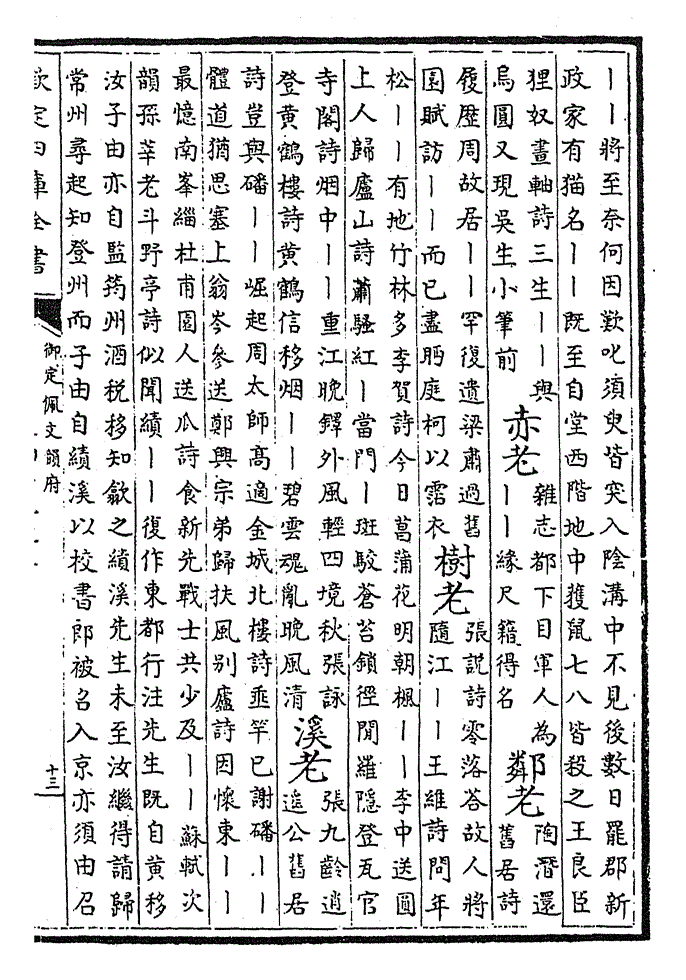 丨丨將至奈何因歎叱須臾皆突入陰溝中不見後數日罷郡新
政家有猫名丨丨既至自堂西階地中獲鼠七八皆殺之王良臣
狸奴畫軸詩三生丨丨與
烏圓又現吳生小筆前
赤老
雜志都下目軍人為
丨丨緣尺籍得名
鄰老
陶潛還
舊居詩
履歴周故居丨丨罕復遺梁肅過舊
園賦訪丨丨而已盡眄庭柯以霑衣
樹老
張說詩零落答故人將
隨江丨丨王維詩問年
松丨丨有地竹林多李賀詩今日菖蒲花明朝楓丨丨李中送圓
上人歸廬山詩蕭騷紅丨當門丨斑駮蒼苔鎖徑閒羅隱登瓦官
寺閣詩烟中丨丨重江晚鐸外風輕四境秋張詠
登黄鶴樓詩黄鶴信移烟丨丨碧雲魂亂晚風清
溪老
張九齡逍
遥公舊居
詩豈與磻丨丨崛起周太師髙適金城北樓詩垂竿已謝磻丨丨
體道猶思塞上翁岑參送鄭興宗弟歸扶風别廬詩因懷東丨丨
最憶南峯緇杜甫園人送瓜詩食新先戰士共少及丨丨蘇軾次
韻孫莘老斗野亭詩似聞績丨丨復作東都行注先生既自黄移
汝子由亦自監筠州酒税移知歙之績溪先生未至汝繼得請歸
常州尋起知登州而子由自績溪以校書郎被召入京亦須由召
欽定四庫全書
御定佩文韻府
十三